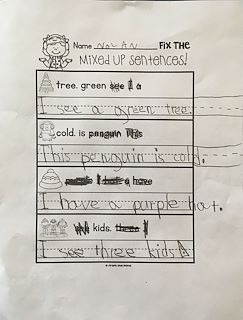 Name Nolan Fix the
Mixed Up Sentences!
tree. green see I a
I see a green tree.
cold. is penguin This
This penguin is cold.
a have
I have a purple hat.
kids. three
I see three kids